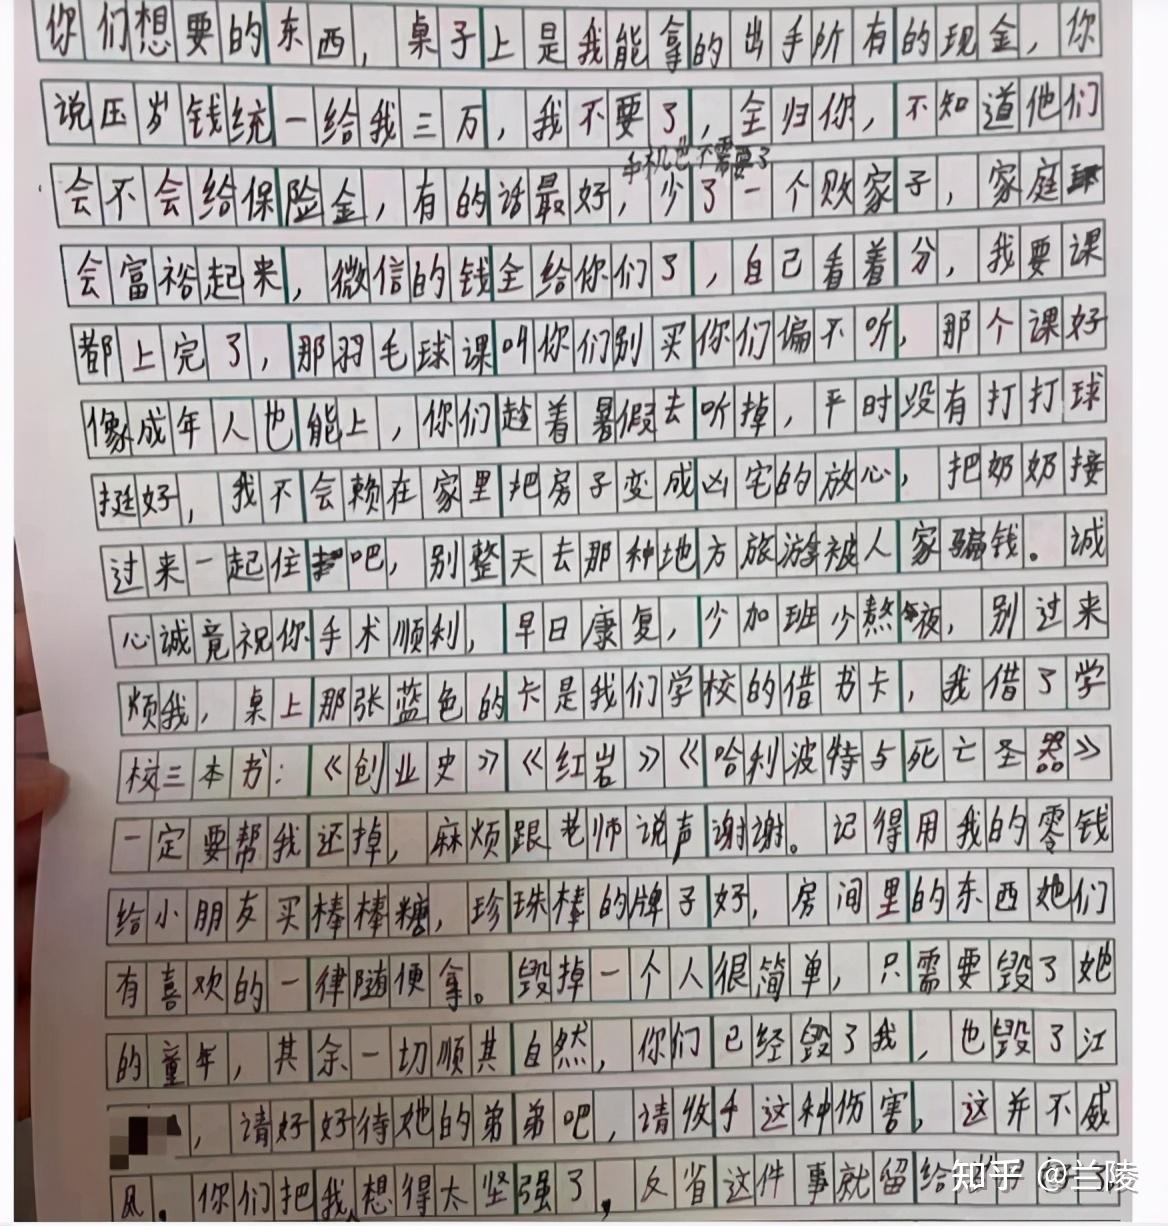 你们想要的东西，桌子上是我能拿的出手所有的现金，你
说压岁钱统一给我三万，我不要了，全归你，不知道他们
手机也不需要了
会不会给保险金，有的话最好，少了一个败家子，家庭
会富裕起来，微信的钱全给你们了，自己看着分，我要课
都上完了，那羽毛球课叫你们别买你们偏不听，那个课好
像成年人也能上，你们趁着暑假去听掉，平时没有打打球
挺好，我不会赖在家里把房子变成凶宅的放心，把奶奶接
过来一起住吧，别整天去那种地方旅游被人家骗钱。诚
心诚竟祝你手术顺利，早日康复，少加班少熬夜，别过来
烦我，桌上那张蓝色的卡是我们学校的借书卡，我借了学
校三本书：《创业史》《红岩》《哈利波特与死亡圣器》
一定要帮我还掉，麻烦跟老师说声谢谢。记得用我的零钱
给小朋友买棒棒糖，珍珠棒的牌子好，房间里的东西她们
有喜欢的一律随便拿。毁掉一个人很简单，只需要毁了她
的童年，其余一切顺其自然，你们已经毁了我，也毁了江
，请好好待她的弟弟吧，请收手这种伤害，这并不威
风。你们把我想得太坚强了，反省这件事就留给
知乎 @兰陵